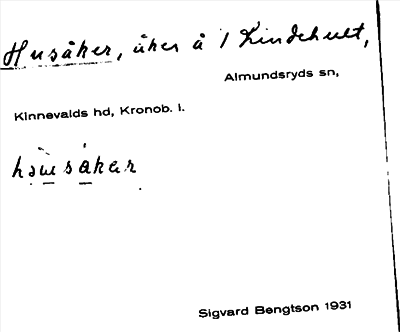 Husåker, åker å 1 Kindehult,
Almundsryds sn,
Kinnevalds hd, Kronob. l.
Sigvard Bengtson 1931